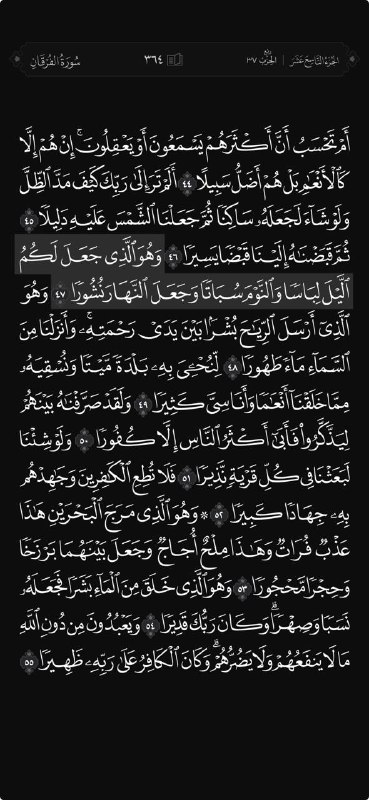 سُورَةُ الفُرْقَانِ ٣٦٤ رُبع الحِزْب ٣٧ | الجُزءُ التَّاسِعَ عَشَرَ
أَمْ تَحْسَبُ أَنَّ أَكْثَرَهُمْ يَسْمَعُونَ أَوْ يَعْقِلُونَ ۚ إِنْ هُمْ إِلَّا
كَالْأَنْعَٰمِ بَلْ هُمْ أَضَلُّ سَبِيلًا ٤٤ أَلَمْ تَرَ إِلَىٰ رَبِّكَ كَيْفَ مَدَّ الظِّلَّ
وَلَوْ شَآءَ لَجَعَلَهُۥ سَاكِنًا ثُمَّ جَعَلْنَا الشَّمْسَ عَلَيْهِ دَلِيلًا ٤٥
ثُمَّ قَبَضْنَٰهُ إِلَيْنَا قَبْضًا يَسِيرًا ٤٦ وَهُوَ الَّذِى جَعَلَ لَكُمُ
الَّيْلَ لِبَاسًا وَالنَّوْمَ سُبَاتًا وَجَعَلَ النَّهَارَ نُشُورًا ٤٧ وَهُوَ
الَّذِىٓ أَرْسَلَ الرِّيَٰحَ بُشْرًۢا بَيْنَ يَدَىْ رَحْمَتِهِۦ ۚ وَأَنزَلْنَا مِنَ
السَّمَآءِ مَآءً طَهُورًا ٤٨ لِّنُحْـِۧىَ بِهِۦ بَلْدَةً مَّيْتًا وَنُسْقِيَهُۥ
مِمَّا خَلَقْنَآ أَنْعَٰمًا وَأَنَاسِىَّ كَثِيرًا ٤٩ وَلَقَدْ صَرَّفْنَٰهُ بَيْنَهُمْ
لِيَذَّكَّرُوا۟ فَأَبَىٰٓ أَكْثَرُ النَّاسِ إِلَّا كُفُورًا ٥٠ وَلَوْ شِئْنَا
لَبَعَثْنَا فِى كُلِّ قَرْيَةٍ نَّذِيرًا ٥١ فَلَا تُطِعِ الْكَٰفِرِينَ وَجَٰهِدْهُم
بِهِۦ جِهَادًا كَبِيرًا ٥٢ ۞ وَهُوَ الَّذِى مَرَجَ الْبَحْرَيْنِ هَٰذَا
عَذْبٌ فُرَاتٌ وَهَٰذَا مِلْحٌ أُجَاجٌ وَجَعَلَ بَيْنَهُمَا بَرْزَخًا
وَحِجْرًا مَّحْجُورًا ٥٣ وَهُوَ الَّذِى خَلَقَ مِنَ الْمَآءِ بَشَرًا فَجَعَلَهُۥ
نَسَبًا وَصِهْرًا ۗ وَكَانَ رَبُّكَ قَدِيرًا ٥٤ وَيَعْبُدُونَ مِن دُونِ اللَّهِ
مَا لَا يَنفَعُهُمْ وَلَا يَضُرُّهُمْ ۗ وَكَانَ الْكَافِرُ عَلَىٰ رَبِّهِۦ ظَهِيرًا ٥٥